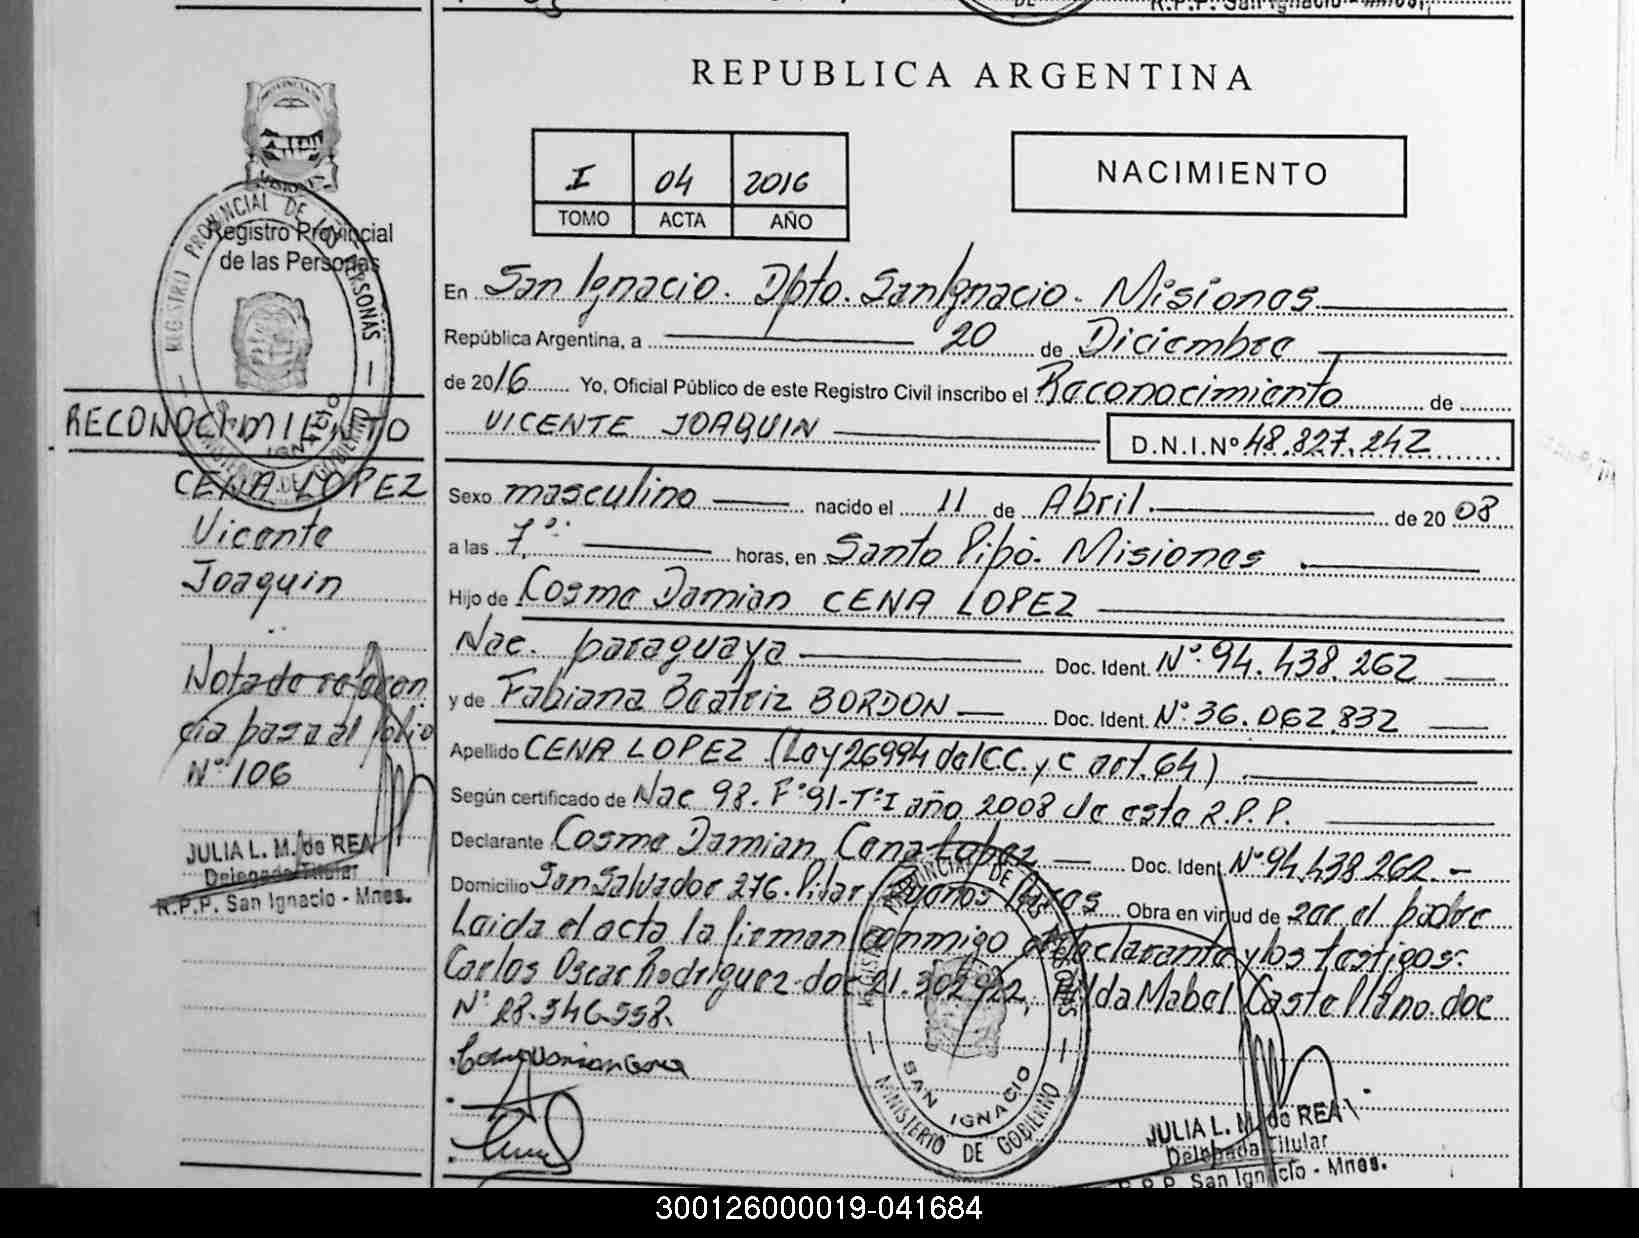 R.P.P. San Ignacio - Mnes.
REPUBLICA ARGENTINA
I 04 2016
TOMO ACTA AÑO
NACIMIENTO
REGISTRO PROVINCIAL DE LAS PERSONAS
MINISTERIO DE GOBIERNO
Registro Provincial
de las Personas
RECONOCIMIENTO
CENA LOPEZ
Vicente
Joaquin
Nota de referen
cia pasa al folio
N° 106
JULIA L. M. de REA
Delegada Titular
R.P.P. San Ignacio - Mnes.
En San Ignacio. Dpto. San Ignacio. Misiones
República Argentina, a 20 de Diciembre
de 2016 Yo, Oficial Público de este Registro Civil inscribo el Reconocimiento de
VICENTE JOAQUIN D.N.I.Nº 48.827.242
Sexo masculino nacido el 11 de Abril. de 20 08
a las 7,°° horas, en Santo Pipó. Misiones
Hijo de Cosme Damian CENA LOPEZ
Nac. paraguaya Doc. Ident. N° 94.438.262
y de Fabiana Beatriz BORDON Doc. Ident. N° 36.062.832
Apellido CENA LOPEZ (Ley 26994 del C.C. y C art. 64)
Según certificado de Nac 98. F°91-T°I año 2008 de esta R.P.P.
Declarante Cosme Damian Cena Lopez Doc. Ident. N° 94.438.262.-
Domicilio San Salvador 276. Pilar Buenos Aires Obra en virtud de ser el padre
Leida el acta la firman conmigo el declarante y los testigos:
Carlos Oscar Rodriguez doc 21.302.922, Hilda Mabel Castellano. doc
N° 28.346.558.
SAN IGNACIO
MINISTERIO DE GOBIERNO
JULIA L. M. de REA
Delegada Titular
R.P.P. San Ignacio - Mnes.
300126000019-041684